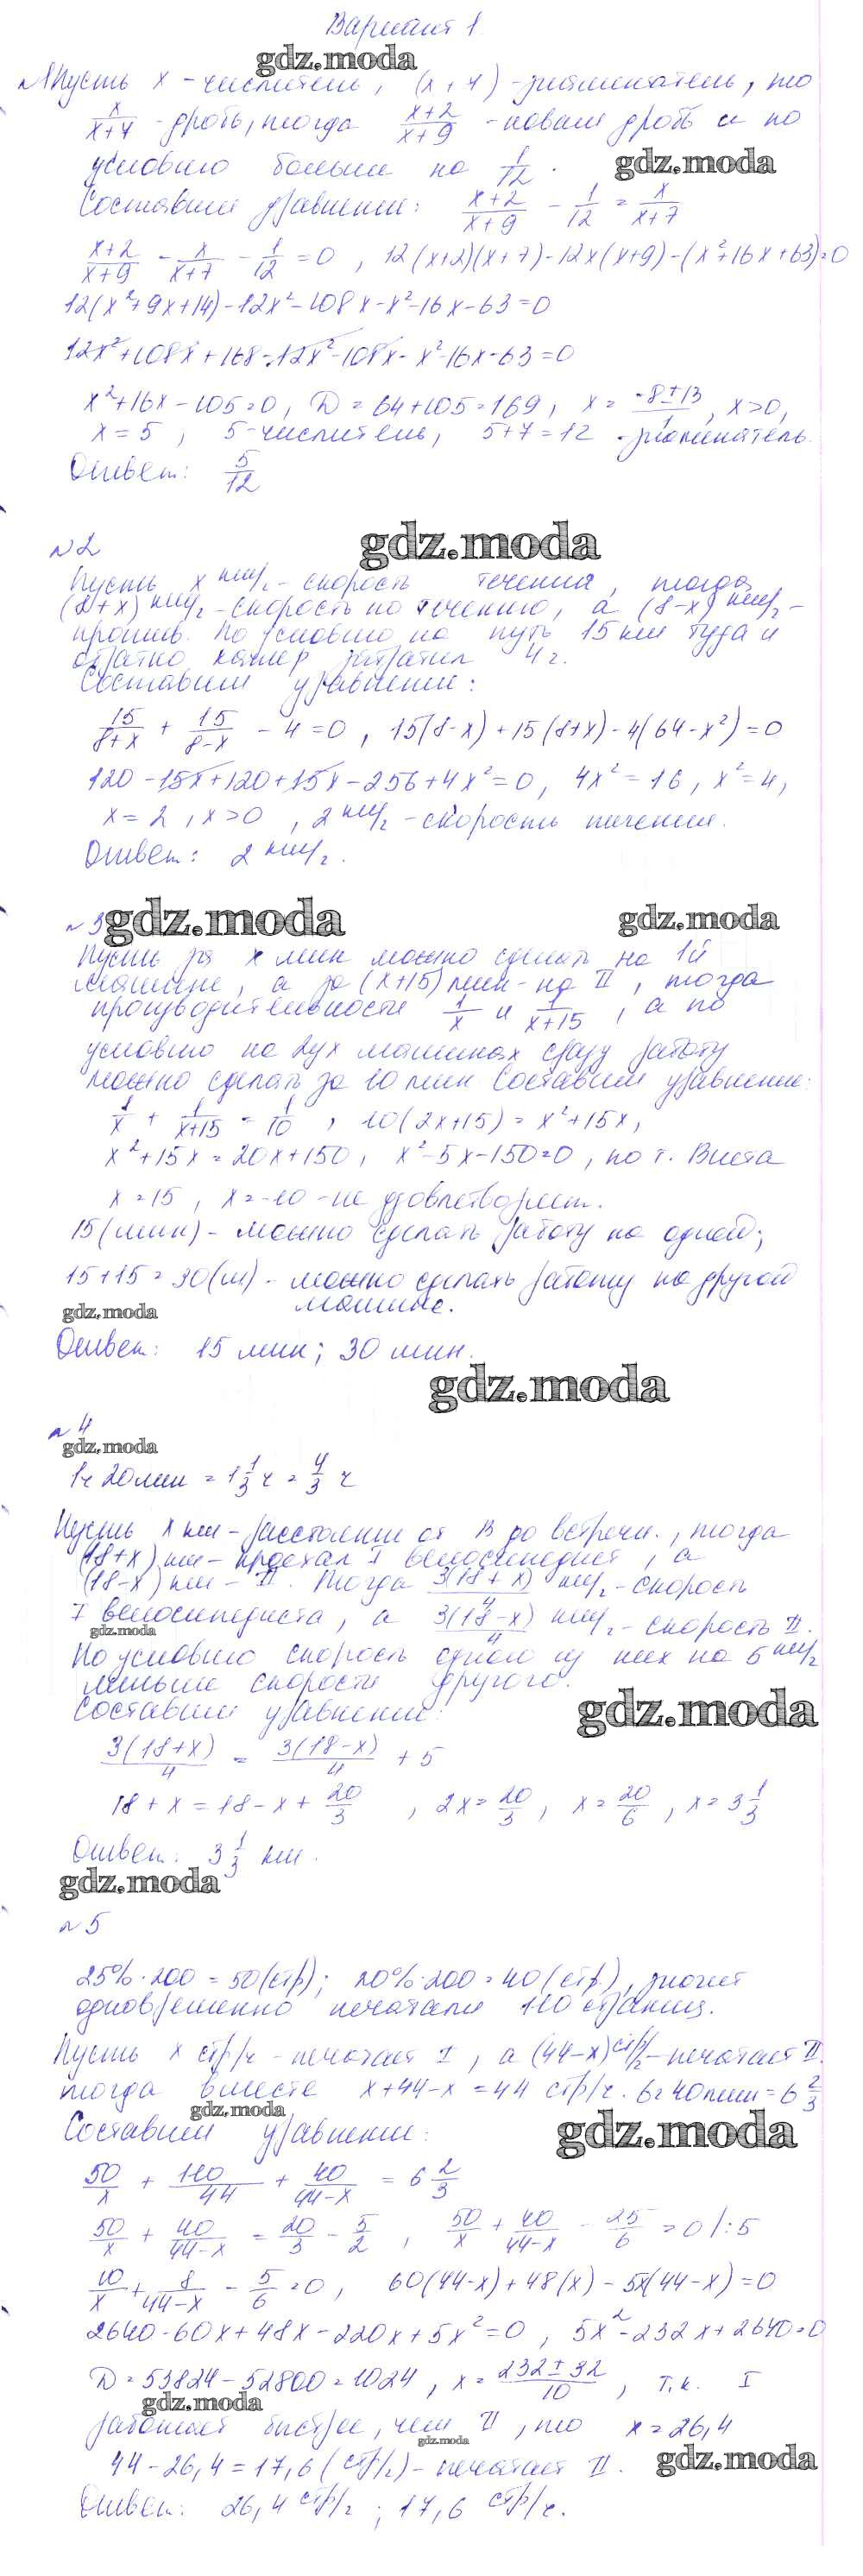 Вариант 1
gdz.moda
№1 Пусть x - числитель, (x+7) - знаменатель, то
x/(x+7) - дробь, тогда (x+2)/(x+9) - новая дробь и по
условию больше на 1/12.
gdz.moda
Составим уравнение: (x+2)/(x+9) - 1/12 = x/(x+7)
(x+2)/(x+9) - x/(x+7) - 1/12 = 0, 12(x+2)(x+7)-12x(x+9)-(x²+16x+63)=0
12(x²+9x+14)-12x²-108x-x²-16x-63=0
12x²+108x+168-12x²-108x-x²-16x-63=0
x²+16x-105=0, D=64+105=169, x=(-8±13)/1, x>0,
x=5, 5-числитель, 5+7=12 - знаменатель.
Ответ: 5/12
№2
gdz.moda
Пусть x км/ч - скорость течения, тогда
(8+x) км/ч - скорость по течению, а (8-x) км/ч -
против. По условию на путь 15 км туда и
обратно катер затратил 4 ч.
Составим уравнение:
15/(8+x) + 15/(8-x) - 4 = 0, 15(8-x)+15(8+x)-4(64-x²)=0
120-15x+120+15x-256+4x²=0, 4x²=16, x²=4,
x=2, x>0, 2 км/ч - скорость течения.
Ответ: 2 км/ч.
№3
gdz.moda
gdz.moda
Пусть за x мин можно сделать на 1й
машине, а за (x+15) мин - на II, тогда
производительности 1/x и 1/(x+15), а по
условию на двух машинах сразу работу
можно сделать за 10 мин Составим уравнение:
1/x + 1/(x+15) = 1/10, 10(2x+15)=x²+15x,
x²+15x=20x+150, x²-5x-150=0, по т. Виета
x=15, x=-10 - не удовлетворяет.
15 (мин) - можно сделать работу на одной;
15+15=30(м) - можно сделать работу на другой
машине.
gdz.moda
Ответ: 15 мин; 30 мин.
gdz.moda
№4
gdz.moda
1ч 20мин = 1 1/3 ч = 4/3 ч
Пусть x км - расстояние от B до встречи, тогда
(18+x) км - проехал I велосипедист, а
(18-x) км - II. Тогда 3(18+x)/4 км/ч - скорость
I велосипедиста, а 3(18-x)/4 км/ч - скорость II.
gdz.moda
По условию скорость одного из них на 5 км/ч
меньше скорости другого.
Составим уравнение:
gdz.moda
3(18+x)/4 = 3(18-x)/4 + 5
18+x=18-x+20/3, 2x=20/3, x=20/6, x=3 1/3
Ответ: 3 1/3 км.
gdz.moda
№5
25%·200=50(стр); 20%·200=40(стр), значит
одновременно печатали 110 страниц.
Пусть x стр/ч - печатает I, а (44-x) стр/ч - печатает II.
тогда вместе x+44-x=44 стр/ч. 6ч 40мин=6 2/3
gdz.moda
Составим уравнение:
gdz.moda
50/x + 110/44 + 40/(44-x) = 6 2/3
50/x + 40/(44-x) = 20/3 - 5/2, 50/x + 40/(44-x) - 25/6 = 0 /:5
10/x + 8/(44-x) - 5/6 = 0, 60(44-x)+48(x)-5x(44-x)=0
2640-60x+48x-220x+5x²=0, 5x²-232x+2640=0
D=53824-52800=1024, x=(232±32)/10, т.к. I
gdz.moda
работает быстрее, чем II, то x=26,4
gdz.moda
44-26,4=17,6 (стр/ч) - печатает II.
gdz.moda
Ответ: 26,4 стр/ч; 17,6 стр/ч.